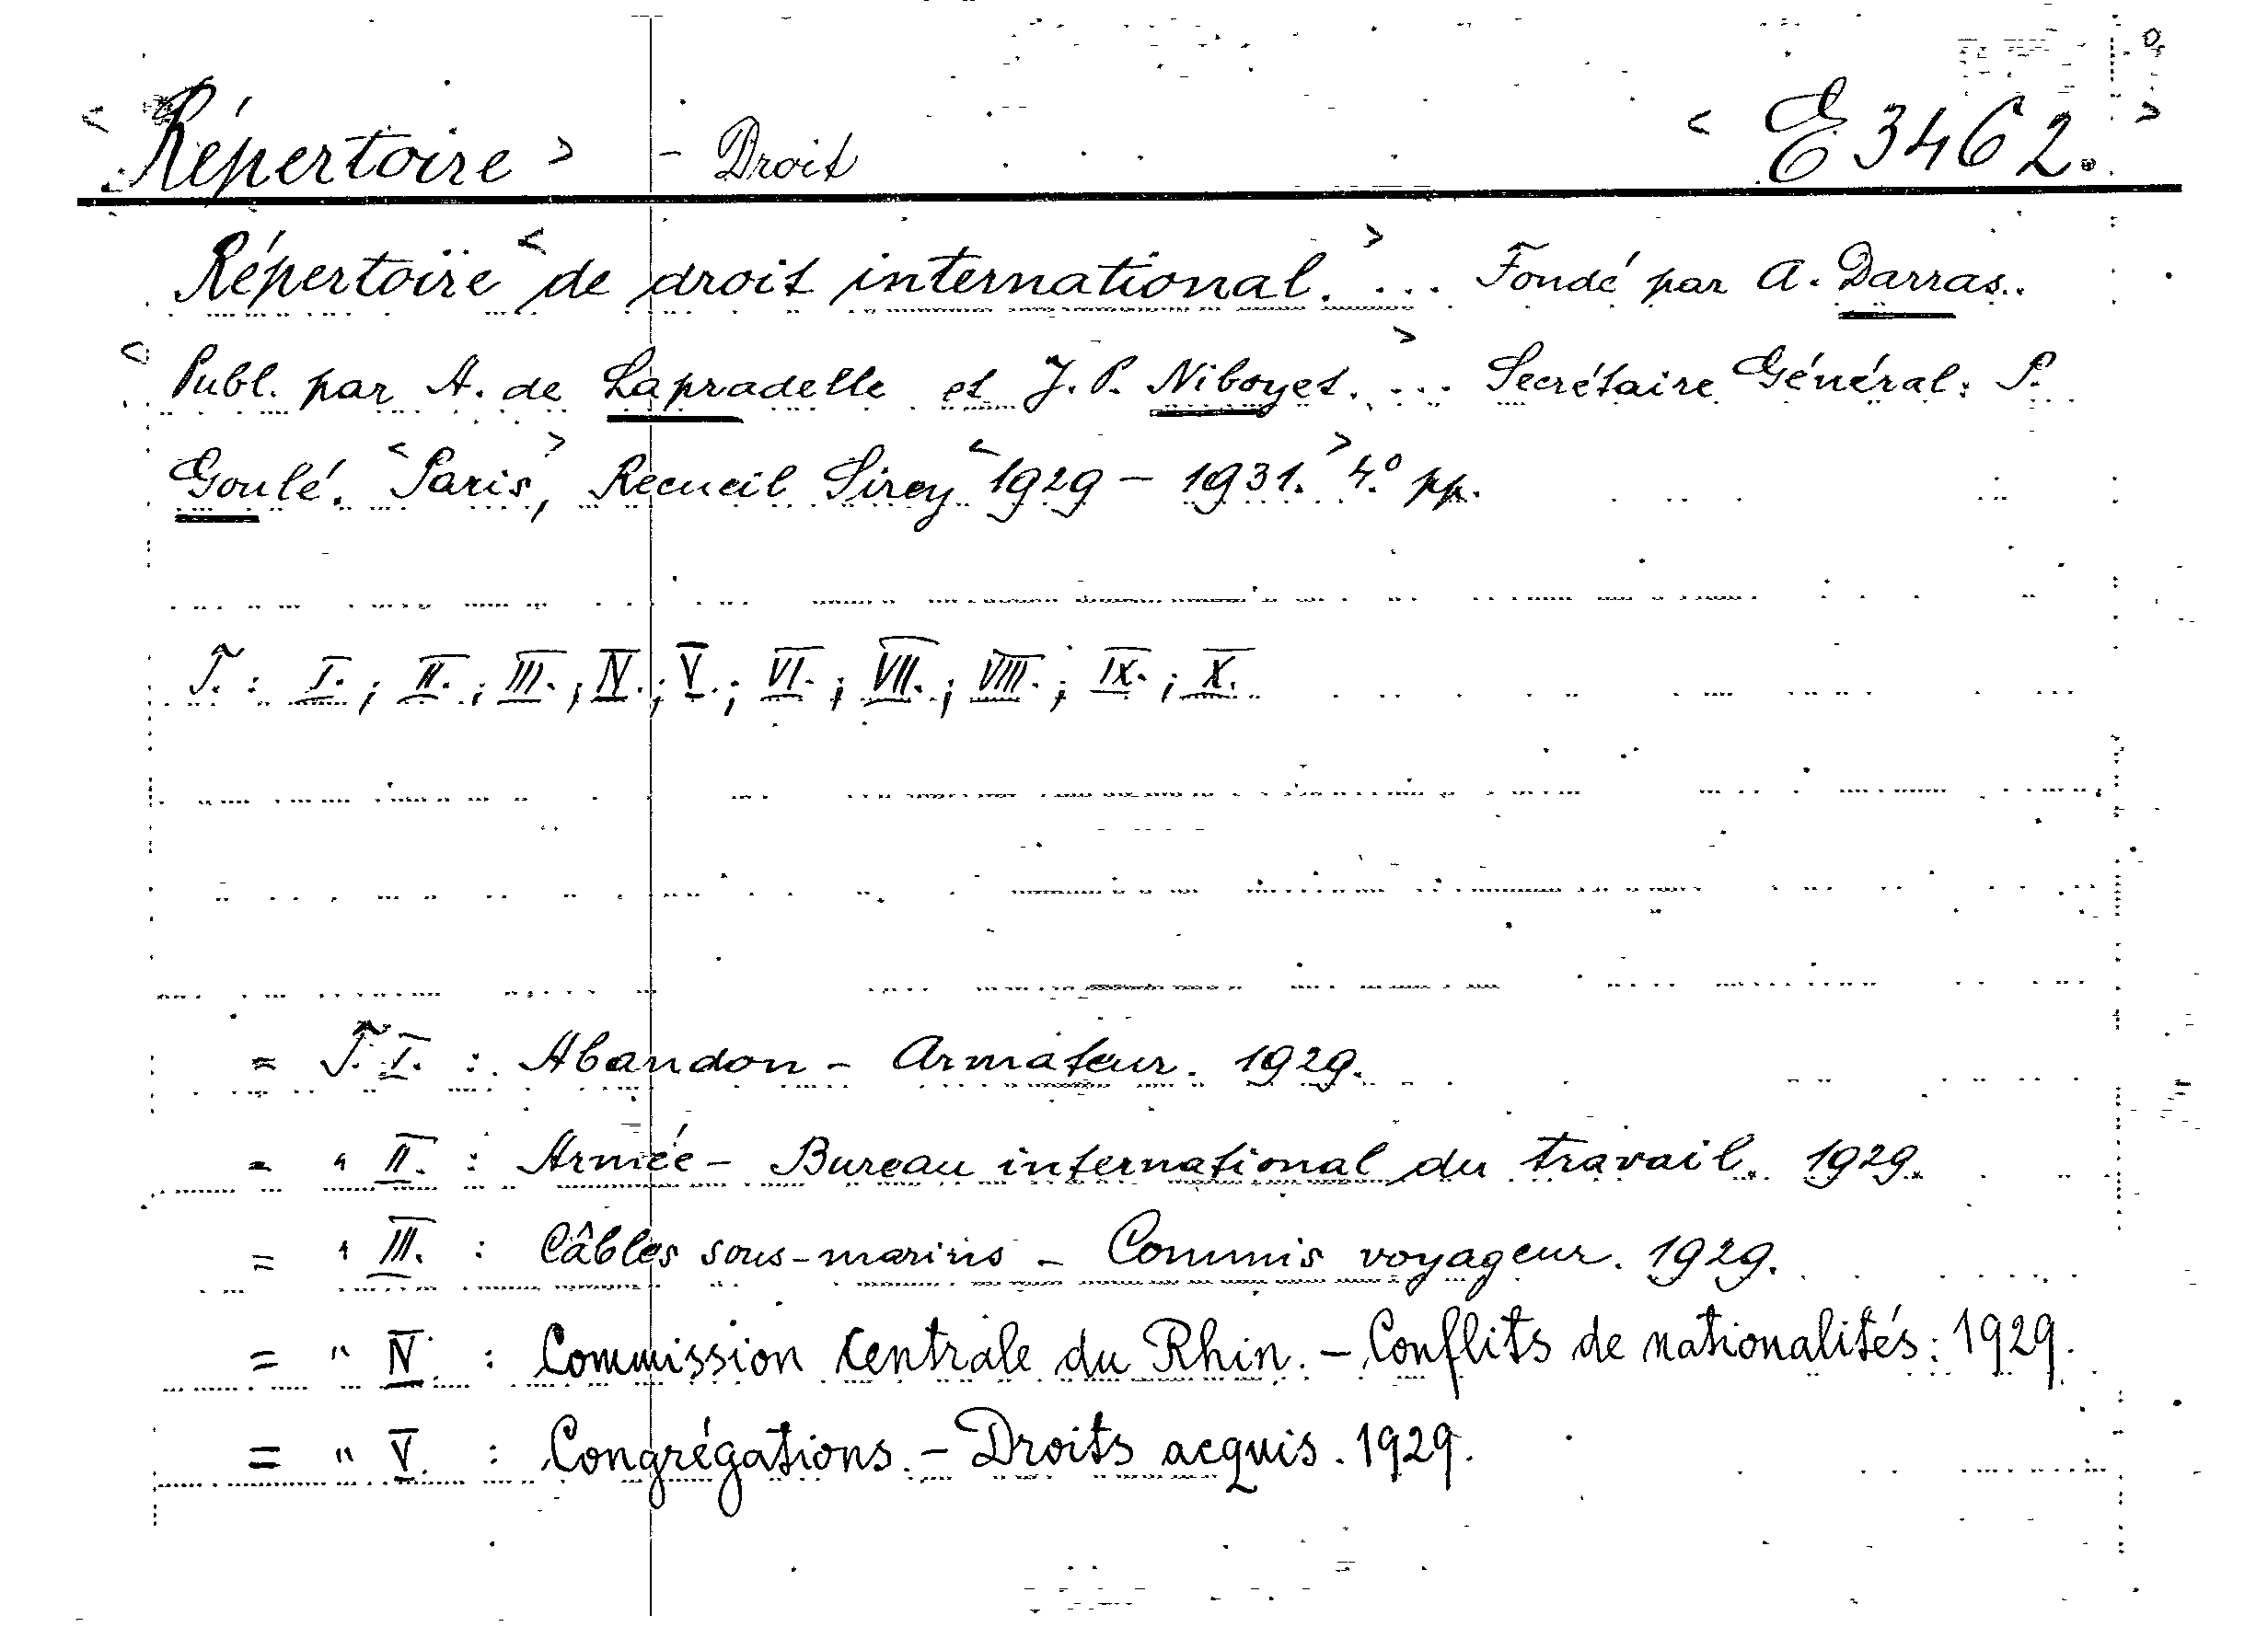 < Répertoire > - Droit < E 3462. >
Répertoire < de droit international. > ... Fondé par A. Darras..
< Publ. par A. de Lapradelle et J. P. Niboyet. > ... Secrétaire Général: P.
Goulé. < Paris, > Recueil Sirey < 1929 - 1931. > 4.° pp.
T. : I. ; II. ; III. ; IV. ; V. ; VI. ; VII. ; VIII. ; IX. ; X.
= T. I. : Abandon - Armateur. 1929.
= " II. : Armée - Bureau international du travail. 1929.
= " III. : Câbles sous-marins - Commis voyageur. 1929.
= " IV. : Commission centrale du Rhin. - Conflits de nationalités: 1929.
= " V. : Congrégations. - Droits acquis. 1929.